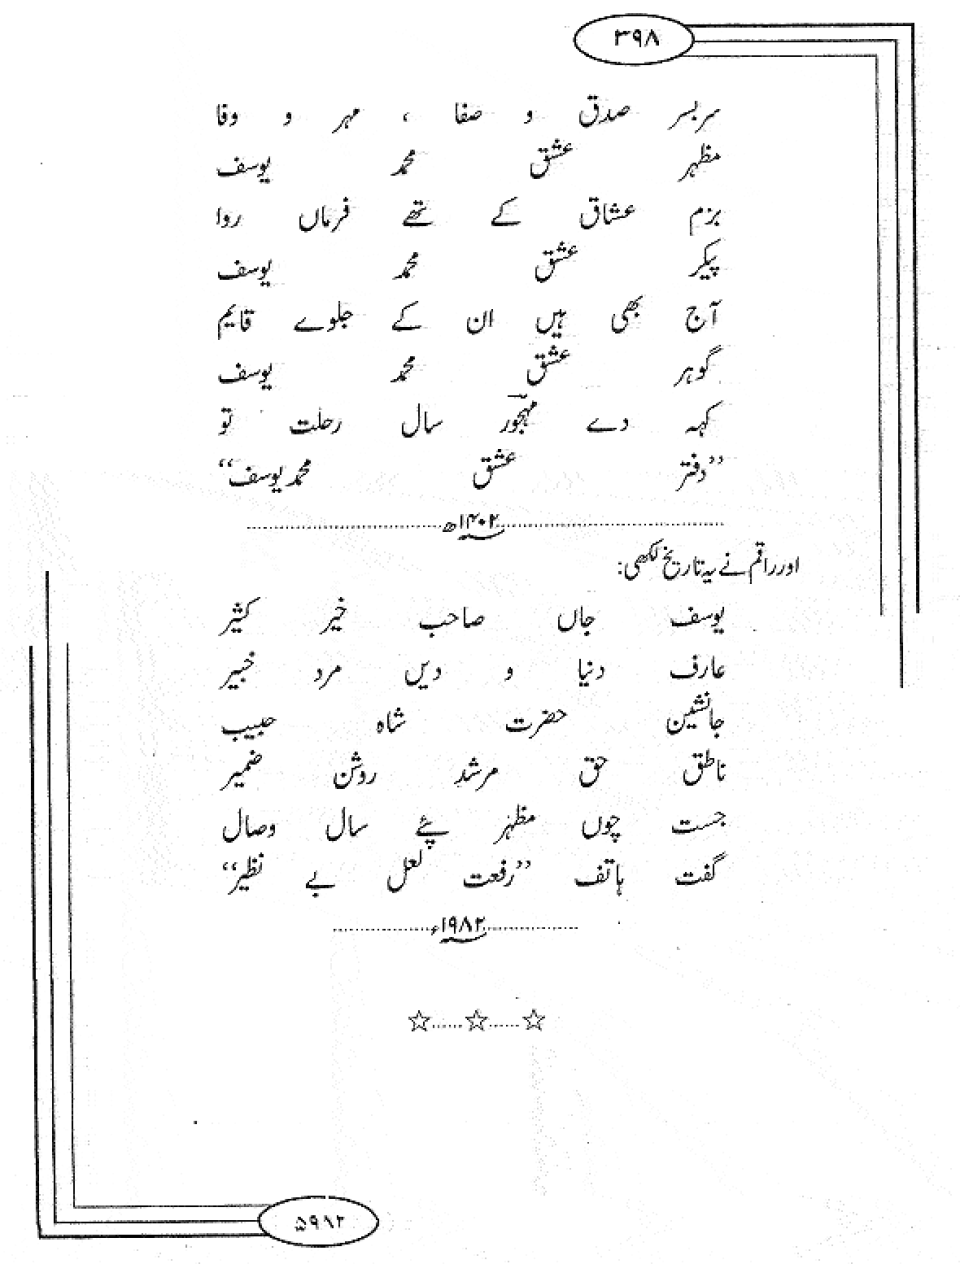 ۳۹۸
سربسر صدق و صفا ، مہر و وفا
مظہر عشق محمد یوسف
بزم عشاق کے تھے فرماں روا
پیکر عشق محمد یوسف
آج بھی ہیں ان کے جلوے قایم
گوہر عشق محمد یوسف
کہہ دے مہجورؔ سال رحلت تو
”دفتر عشق محمد یوسف“
۱۴۰۲ھ
اور راقم نے یہ تاریخ لکھی:
یوسف جاں صاحب خیر کثیر
عارف دنیا و دیں مرد خبیر
جانشین حضرت شاہ حبیب
ناطق حق مرشد روشن ضمیر
جست چوں مظہر پئے سال وصال
گفت ہاتف ”رفعت لعل بے نظیر“
۱۹۸۲ء
☆......☆......☆
۵۹۱۲